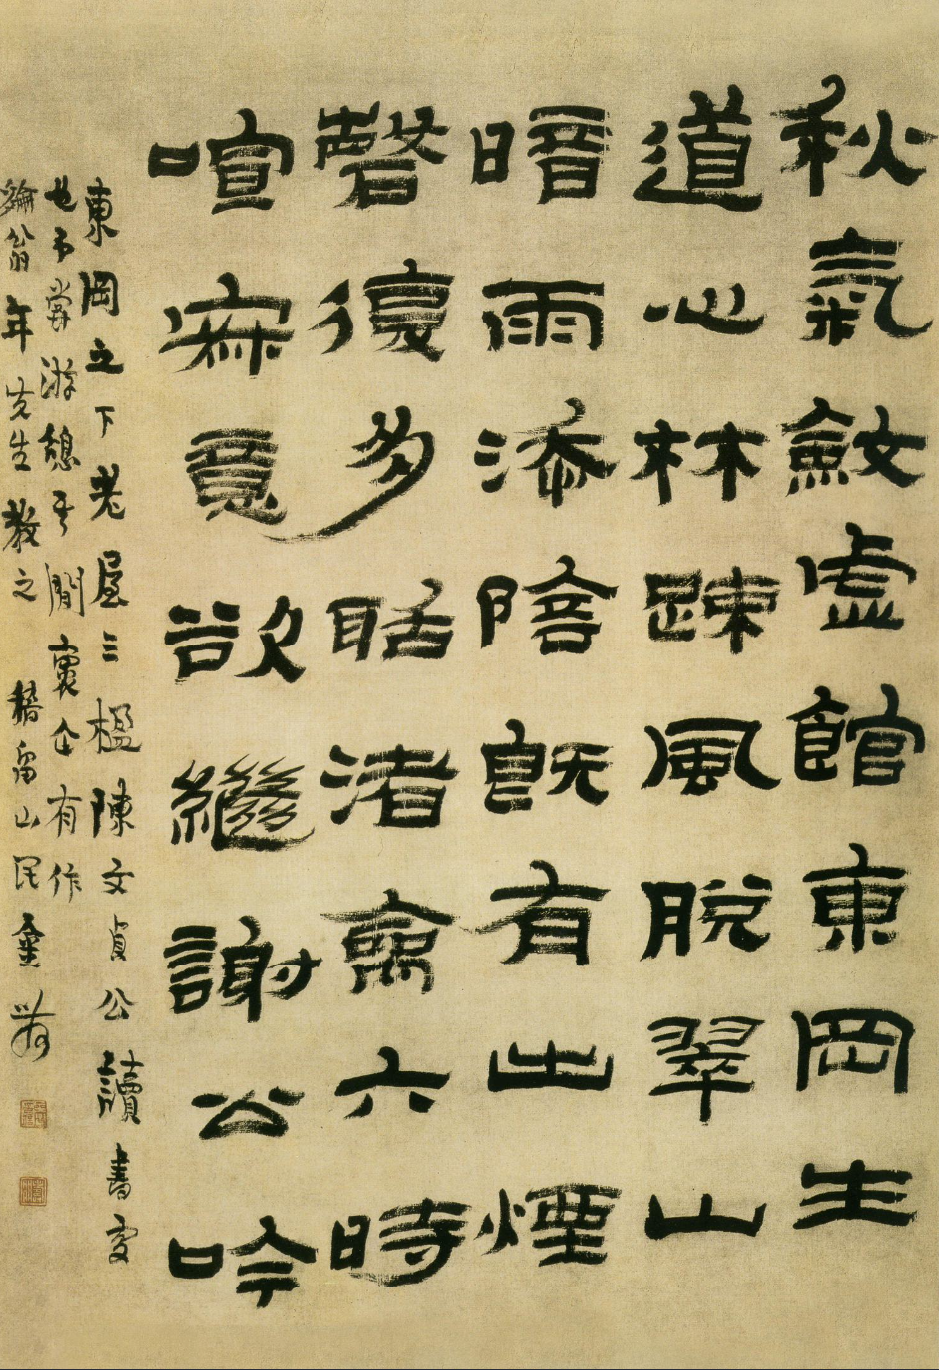 秋氣斂虛館東岡生
道心林疎風脫翠山
暗雨添陰既有出煙
磬復多聒渚禽六時
喧寐意欲繼謝公吟
東岡之下老屋三楹陳文貞公讀書處
也予嘗游憩其間企有作
綸翁年先生教之 稽畱山民金農